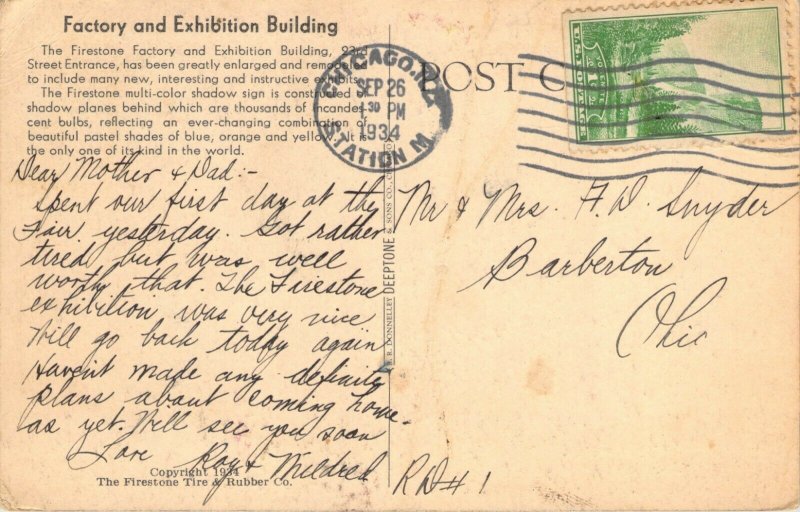 Factory and Exhibition Building
The Firestone Factory and Exhibition Building, 23rd
Street Entrance, has been greatly enlarged and remodeled
to include many new, interesting and instructive exhibits.
The Firestone multi-color shadow sign is constructed of
shadow planes behind which are thousands of incandes-
cent bulbs, reflecting an ever-changing combination of
beautiful pastel shades of blue, orange and yellow. It is
the only one of its kind in the world.
CHICAGO, ILL.
SEP 26
1934
STATION M
POST C
Dear Mother & Dad:-
Spent our first day at the
Fair yesterday. Got rather
tired but was well
worth that. The Firestone
exhibition was very nice
Will go back today again
Havent made any definity
plans about coming home
as yet. Will see you soon
Love
Roy & Mildred
Copyright 1934
The Firestone Tire & Rubber Co.
R. R. DONNELLEY DEEPTONE & SONS CO.,
Mr & Mrs. F. D. Snyder
Barberton
Ohio
RD# 1